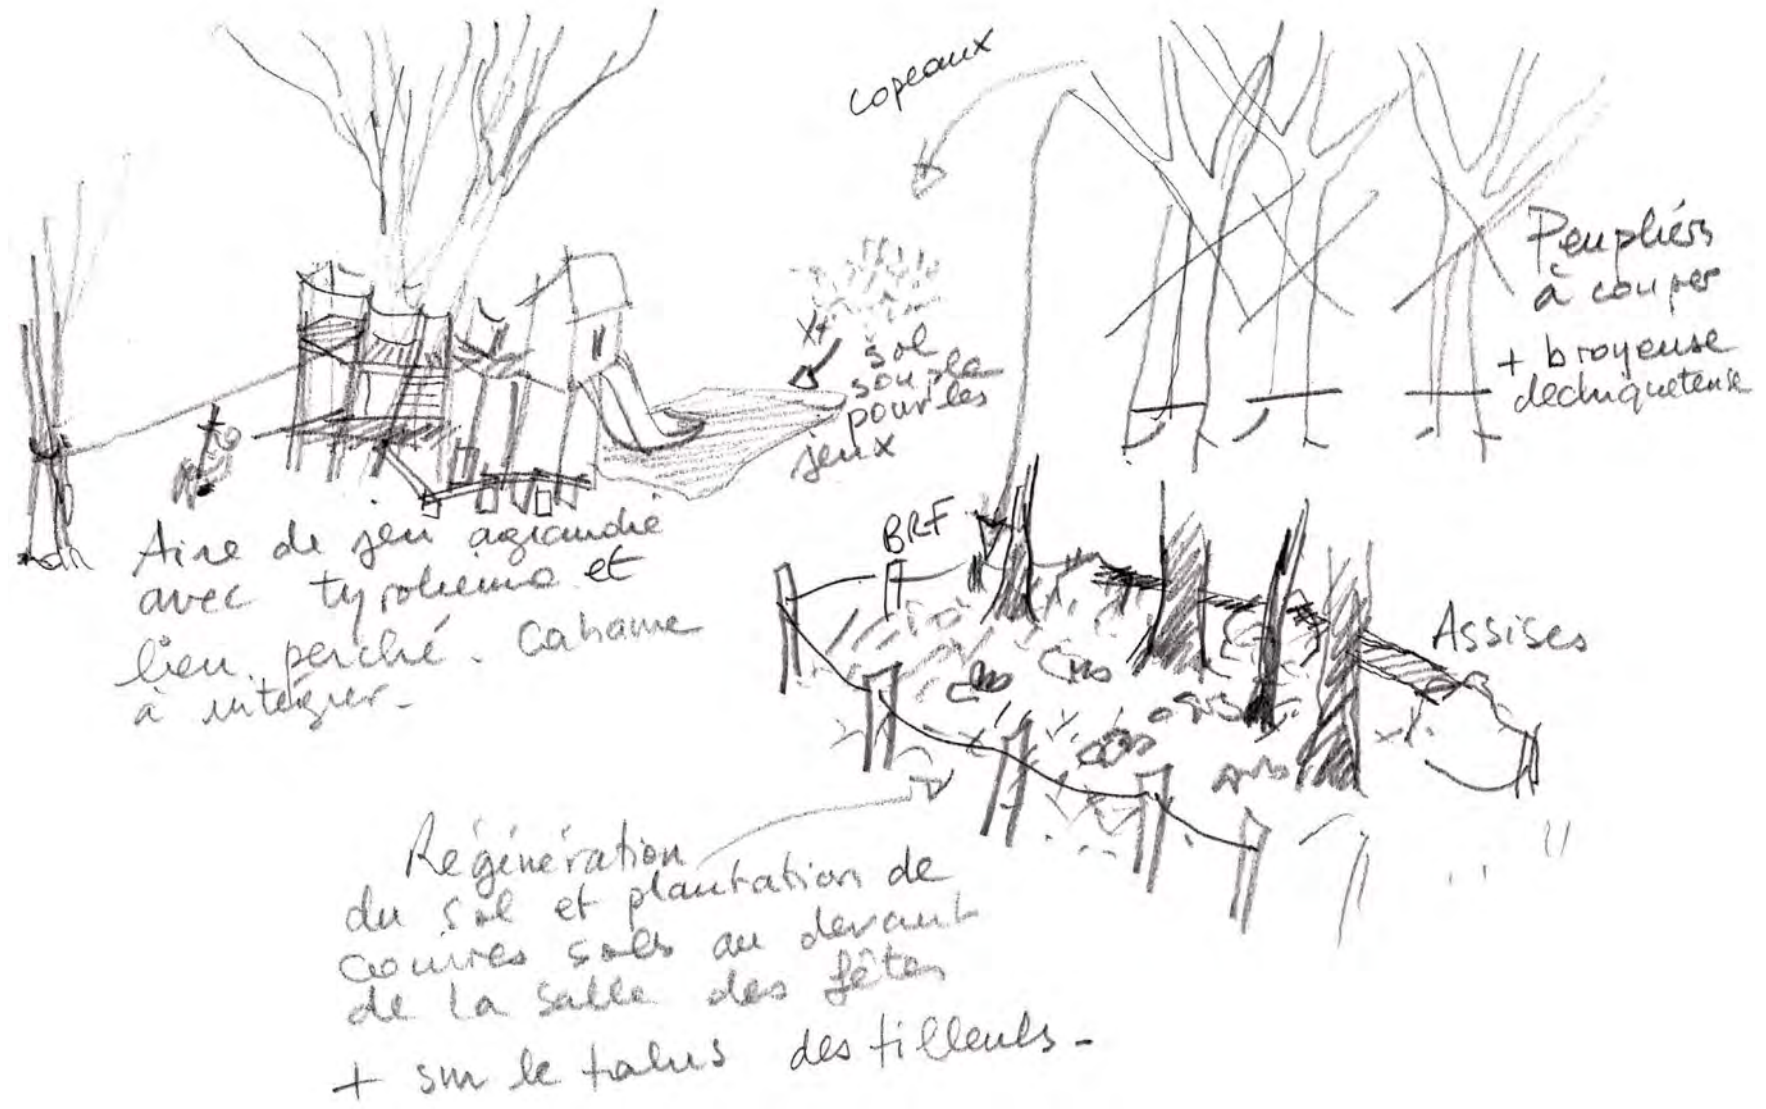 copeaux
Peupliers
à couper
+ broyeuse
dechiqueteuse
sol
souple
pour les
jeux
Aire de jeu agrandie
avec tyrolienne et
lien perché. Cabane
à intégrer.
BRF
Assises
Régénération
du sol et plantation de
couvres sols au devant
de la salle des fêtes
+ sur le talus des tilleuls.